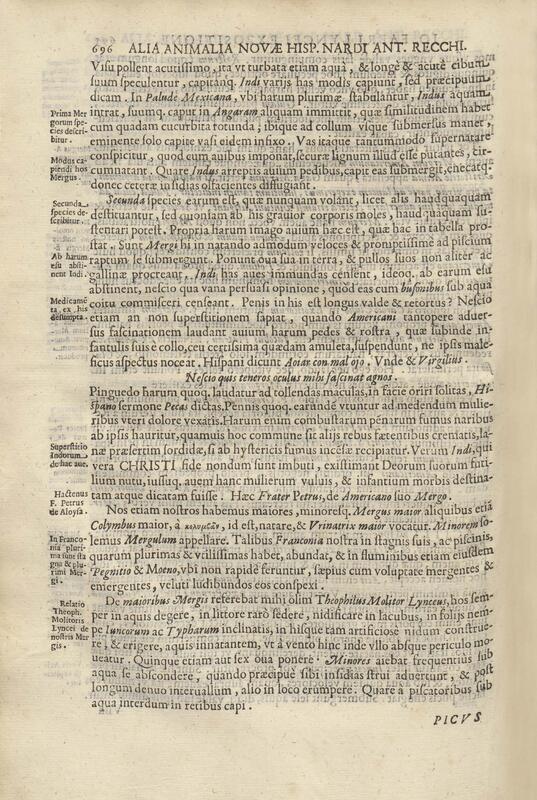 696 ALIA ANIMALIA NOVÆ HISP. NARDI ANT. RECCHI.
Visu pollent acutissimo, ita vt turbata etiam aqua, & longè & acutè cibum
suum speculentur, capiantq. Indi varijs has modis capiunt, sed præcipuum
dicam. In Palude Mexicana, vbi harum plurimæ stabulantur, Indus aquam
intrat, suumq. caput in Angaram aliquam immittit, quæ similitudinem habet
Prima Mer
gorum spe
cies descri
bitur.
cum quadam cucurbita rotunda; ibique ad collum vsque submersus manet,
eminente solo capite vasi eidem infixo. Vas itaque tantummodo supernatare
conspicitur, quod cum auibus imponat, securæ lignum illud esse putantes, cir-
Modus ca
piendi hos
Mergus.
cumnatant. Quare Indus arreptis auium pedibus, capit eas submergit, enecatq.
donec ceteræ insidias olfacientes diffugiant.
Secunda species earum est, quæ nunquam volant, licet alis haudquaquam
Secunda
species de-
scribitur.
destituantur, sed quoniam ab his grauior corporis moles, haudquaquam su-
stentari potest. Propria harum imago auium hæc est, quæ hac in tabella pro-
stat. Sunt Mergi hi in natando admodum veloces & promptissimè ad piscium
raptum se submergunt. Ponunt oua sua in terra, & pullos suos non aliter ac
Ab harum
esu absti-
nent Indi.
gallinæ procreant. Indi has aues immundas censent, ideoq. ab earum esu
abstinent, nescio qua vana persuasi opinione, quod eas cum bufonibus sub aqua
coitu commisceri censeant. Penis in his est longus valde & retortus? Nescio
Medicamẽ
ta ex his
desumpta.
etiam an non superstitionem sapiat, quando Americani tantopere aduer-
sus fascinationem laudant auium harum pedes & rostra, quæ subinde in-
fantulis suis è collo, ceu certissima quædam amuleta, suspendunt, ne ipsis male-
ficus aspectus noceat. Hispani dicunt Aoiar con mal ojo. Vnde & Virgilius.
Nescio quis teneros oculus mihi fascinat agnos.
Pinguedo harum quoq. laudatur ad tollendas maculas, in facie oriri solitas, Hi-
spano sermone Pecas dictas. Pennis quoq. earundẽ vtuntur ad medendum mulie-
ribus vteri dolore vexatis. Harum enim combustarum pennarum fumus naribus
ab ipsis hauritur, quamuis hoc commune sit alijs rebus fœtentibus crematis, la-
næ præsertim sordidæ, si ab hystericis fumus incensæ recipiatur. Verum Indi, qui
Superstitio
Indorum
de hac aue.
vera CHRISTI fide nondum sunt imbuti, existimant Deorum suorum futi-
lium nutu, iussuq. auem hanc mulierum vuluis, & infantium morbis destina-
tam atque dicatam fuisse. Hæc Frater Petrus, de Americano suo Mergo.
Hactenus
F. Petrus
de Aloysa.
Nos etiam nostros habemus maiores, minoresq. Mergus maior aliquibus etiã
Colymbus maior, à κολυμβᾶν, id est, natare, & Vrinatrix maior vocatur. Minorem so-
lemus Mergulum appellare. Talibus Franconia nostra in stagnis suis, ac piscinis,
In Franco-
nia pluri-
ma sunt sta
gna & plu
rimi Mer-
gi.
quarum plurimas & vtilissimas habet, abundat, & in fluminibus etiam eiusdem
Pegnitio & Moeno, vbi non rapidè feruntur, sæpius cum voluptate mergentes &
emergentes, veluti ludibundos eos conspexi.
De maioribus Mergis referebat mihi olim Theophilus Molitor Lynceus, hos sem-
Relatio
Theoph.
Molitoris
Lyncei de
nostris Mer
gis.
per in aquis degere, in littore rarò sedere, nidificare in lacubus, in folijs nem-
pe Iuncorum ac Typharum inclinatis, in hisque tam artificiose nidum construe-
re, & erigere, aquis innatantem, vt à vento hinc inde vllo absque periculo mo-
ueatur. Quinque etiam aut sex oua ponere. Minores aiebat frequentius sub
aqua se abscondere, quando præcipuè sibi insidias strui aduertunt, & post
longum denuo interuallum, alio in loco erumpere. Quare à piscatoribus sub
aqua interdum in retibus capi.
PICVS